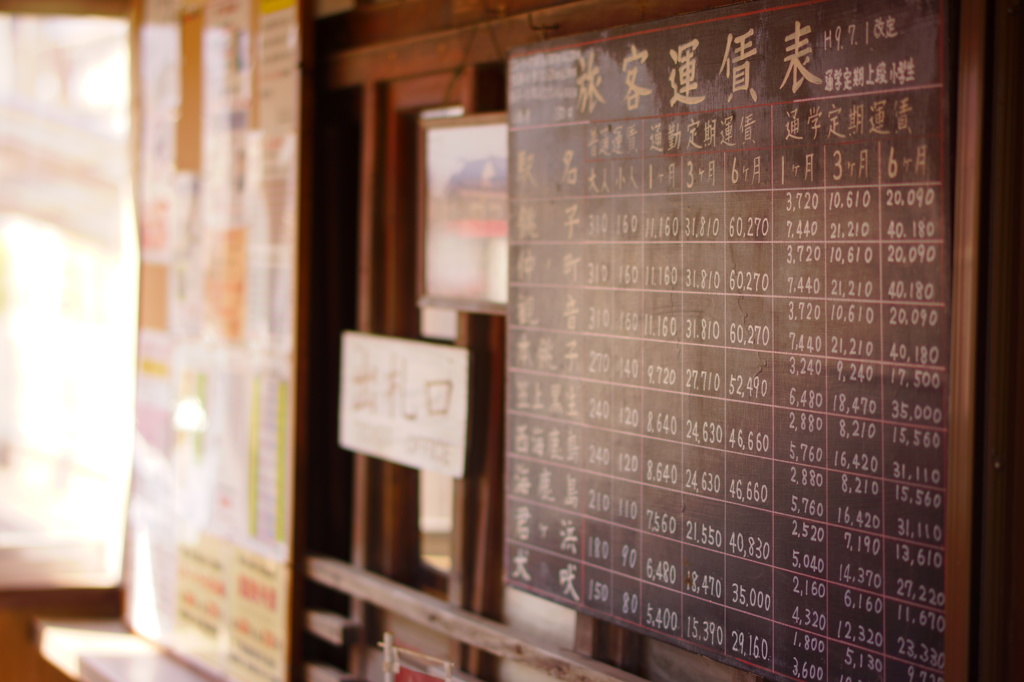 旅客運賃表 H9.7.1改定
通学定期上段小学生
駅名 普通運賃 通勤定期運賃 通学定期運賃
大人 小人 1ヶ月 3ヶ月 6ヶ月 1ヶ月 3ヶ月 6ヶ月
3,720 10,610 20,090
銚子 310 160 11,160 31,810 60,270 7,440 21,210 40,180
3,720 10,610 20,090
仲ノ町 310 160 11,160 31,810 60,270 7,440 21,210 40,180
3,720 10,610 20,090
観音 310 160 11,160 31,810 60,270 7,440 21,210 40,180
3,240 9,240 17,500
本銚子 270 140 9,720 27,710 52,490 6,480 18,470 35,000
2,880 8,210 15,560
笠上黒生 240 120 8,640 24,630 46,660 5,760 16,420 31,110
2,880 8,210 15,560
西海鹿島 240 120 8,640 24,630 46,660 5,760 16,420 31,110
2,520 7,190 13,610
海鹿島 210 110 7,560 21,550 40,830 5,040 14,370 27,220
2,160 6,160 11,670
君ヶ浜 180 90 6,480 18,470 35,000 4,320 12,320 23,330
1,800 5,130
犬吠 150 80 5,400 15,390 29,160 3,600
出札口
OFFICE